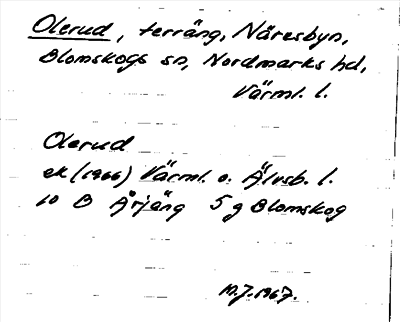 Olerud, terräng, Näresbyn,
Blomskogs sn, Nordmarks hd,
Värml. l.
Olerud
ek (1966) Värml. o. Älvsb. l.
10 B Årjäng 5 g Blomskog
10.7.1967.